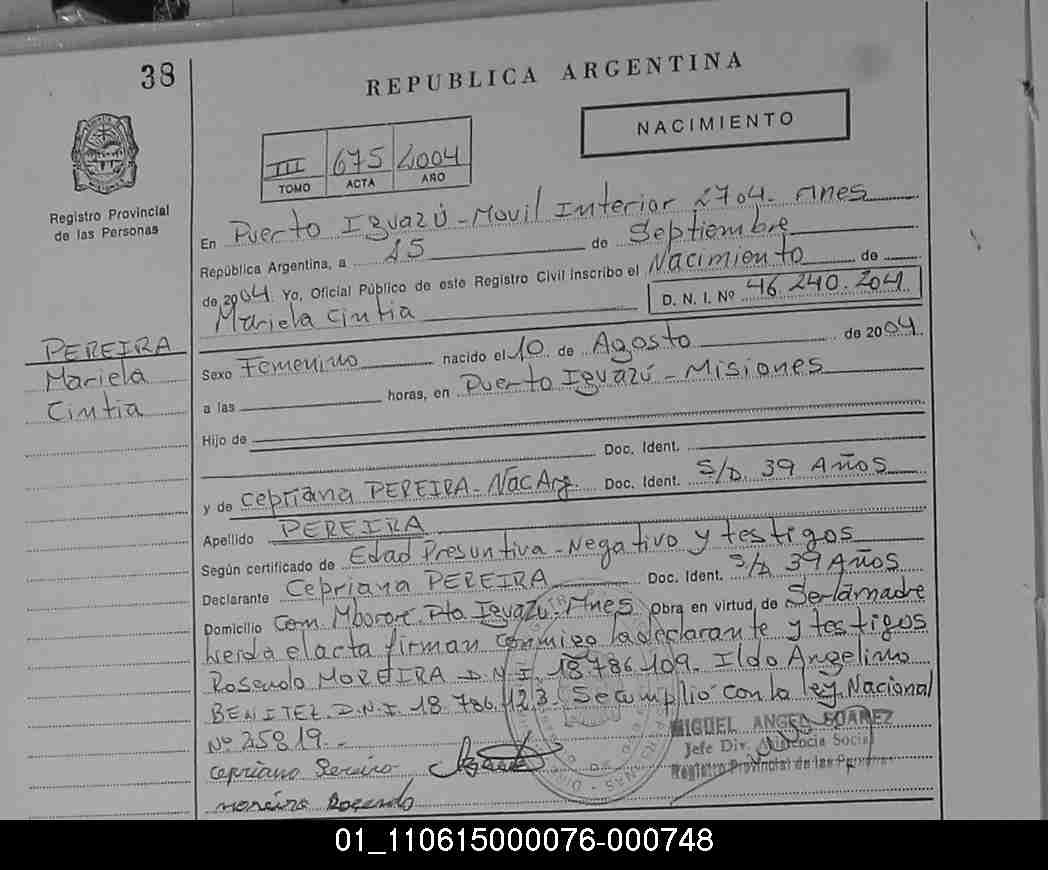 38
REPUBLICA ARGENTINA
NACIMIENTO
III 675 2004
TOMO ACTA AÑO
Registro Provincial
de las Personas
En Puerto Iguazú - Movil Interior 2704. Mnes
República Argentina, a 15 de Septiembre
de 2004 Yo, Oficial Público de este Registro Civil inscribo el Nacimiento de
Mariela Cintia D. N. I. Nº 46.240.204
PEREIRA
Mariela
Cintia
Sexo Femenino nacido el 10 de Agosto de 2004
a las horas, en Puerto Iguazú - Misiones
Hijo de
Doc. Ident.
y de Cepriana PEREIRA - Nac Arg. Doc. Ident. S/D. 39 Años
Apellido PEREIRA
Según certificado de Edad Presuntiva - Negativo y testigos
Declarante Cepriana PEREIRA Doc. Ident. S/D 39 Años
Domicilio Com Mbororé Pto Iguazú - Mnes Obra en virtud de Ser la madre
leida el acta firman conmigo la declarante y testigos
Rosendo MOREIRA D.N.I. 18 786 109. Ildo Angelino
BENITEZ. D.N.I. 18.786.123. Se cumplió con la ley Nacional
Nº 25819.-
MIGUEL ANGEL SUAREZ
Jefe Div. Asistencia Social
Registro Provincial de las Personas
moreira Rosendo
01_110615000076-000748